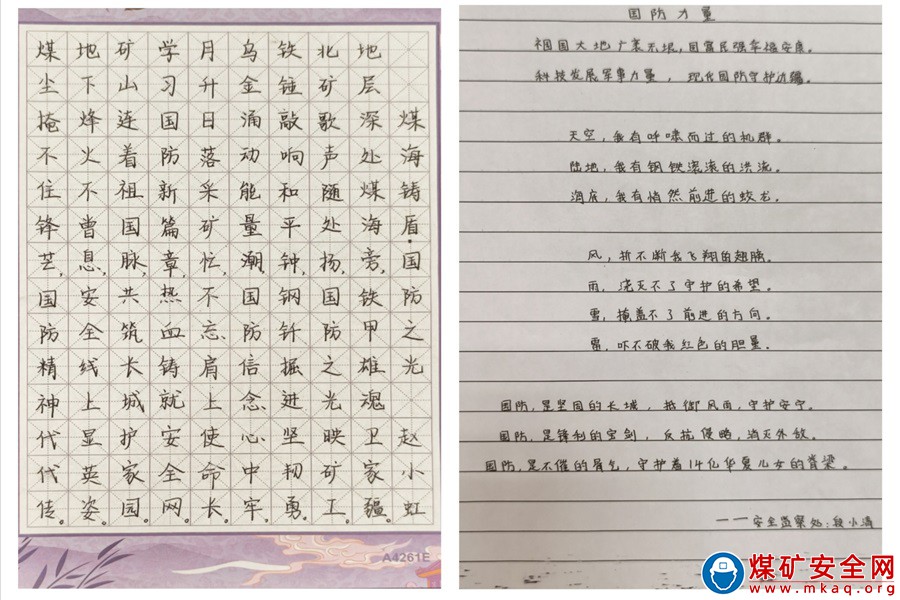 煤海铸盾·国防之光 赵小虹
地层深处煤海旁,铁甲雄魂卫家疆。
北矿歌声随处扬,国防之光映矿工。
铁锤敲响和平钟,钢钎掘进坚韧勇。
乌金涌动能量潮,国防信念心中牢。
月升日落采矿忙,不忘肩上使命长。
学习国防新篇章,热血铸就安全网。
矿山连着祖国脉,共筑长城护家园。
地下烽火不曾息,安全线上显英姿。
煤尘掩不住锋芒,国防精神代代传。
A4261E
国防力量
祖国大地广袤无垠,国富民强幸福安康。
科技发展军事力量,现代国防守护边疆。
天空,我有呼啸而过的机群。
陆地,我有钢铁滚滚的洪流。
海底,我有悄然前进的蛟龙。
风,折不断我飞翔的翅膀。
雨,浇灭不了守护的希望。
雪,掩盖不了前进的方向。
雷,吓不破我红色的胆量。
国防,是坚固的长城,抵御风雨,守护安宁。
国防,是锋利的宝剑,反抗侵略,消灭外敌。
国防,是不催的,守护着14亿华夏儿女的脊梁。
——安全监察处:段小
煤矿安全网
www.mkaq.org